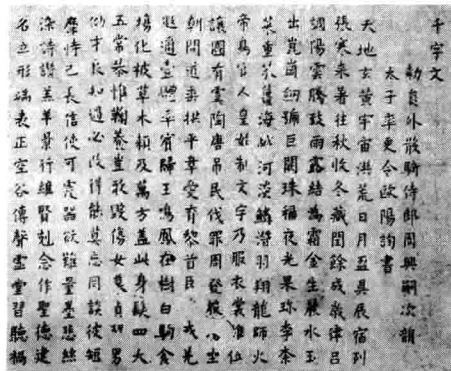 千字文
勅員外散騎侍郎周興嗣次韻
太子率更令歐陽詢書
天地玄黃宇宙洪荒日月盈昃辰宿列
張寒来暑往秋收冬藏閏餘成歲律呂
調陽雲騰致雨露結為霜金生麗水玉
出崑崗劍號巨闕珠稱夜光果珍李柰
菜重芥薑海醎河淡鱗潛羽翔龍師火
帝鳥官人皇始制文字乃服衣裳推位
讓國有虞陶唐吊民伐罪周發殷坐
朝問道垂拱平章愛育黎首臣戎羌
遐邇壹體率賓歸王鳴鳳在樹白駒食
場化被草木賴及萬方盖此身髮四大
五常恭惟鞠養豈敢毀傷女慕貞絜男
效才良知過必改得能莫忘罔談彼短
靡恃己長信使可覆器欲難量墨悲絲
染詩讚羔羊景行維賢剋念作聖德建
名立形端表正空谷傳聲虛堂習聽禍